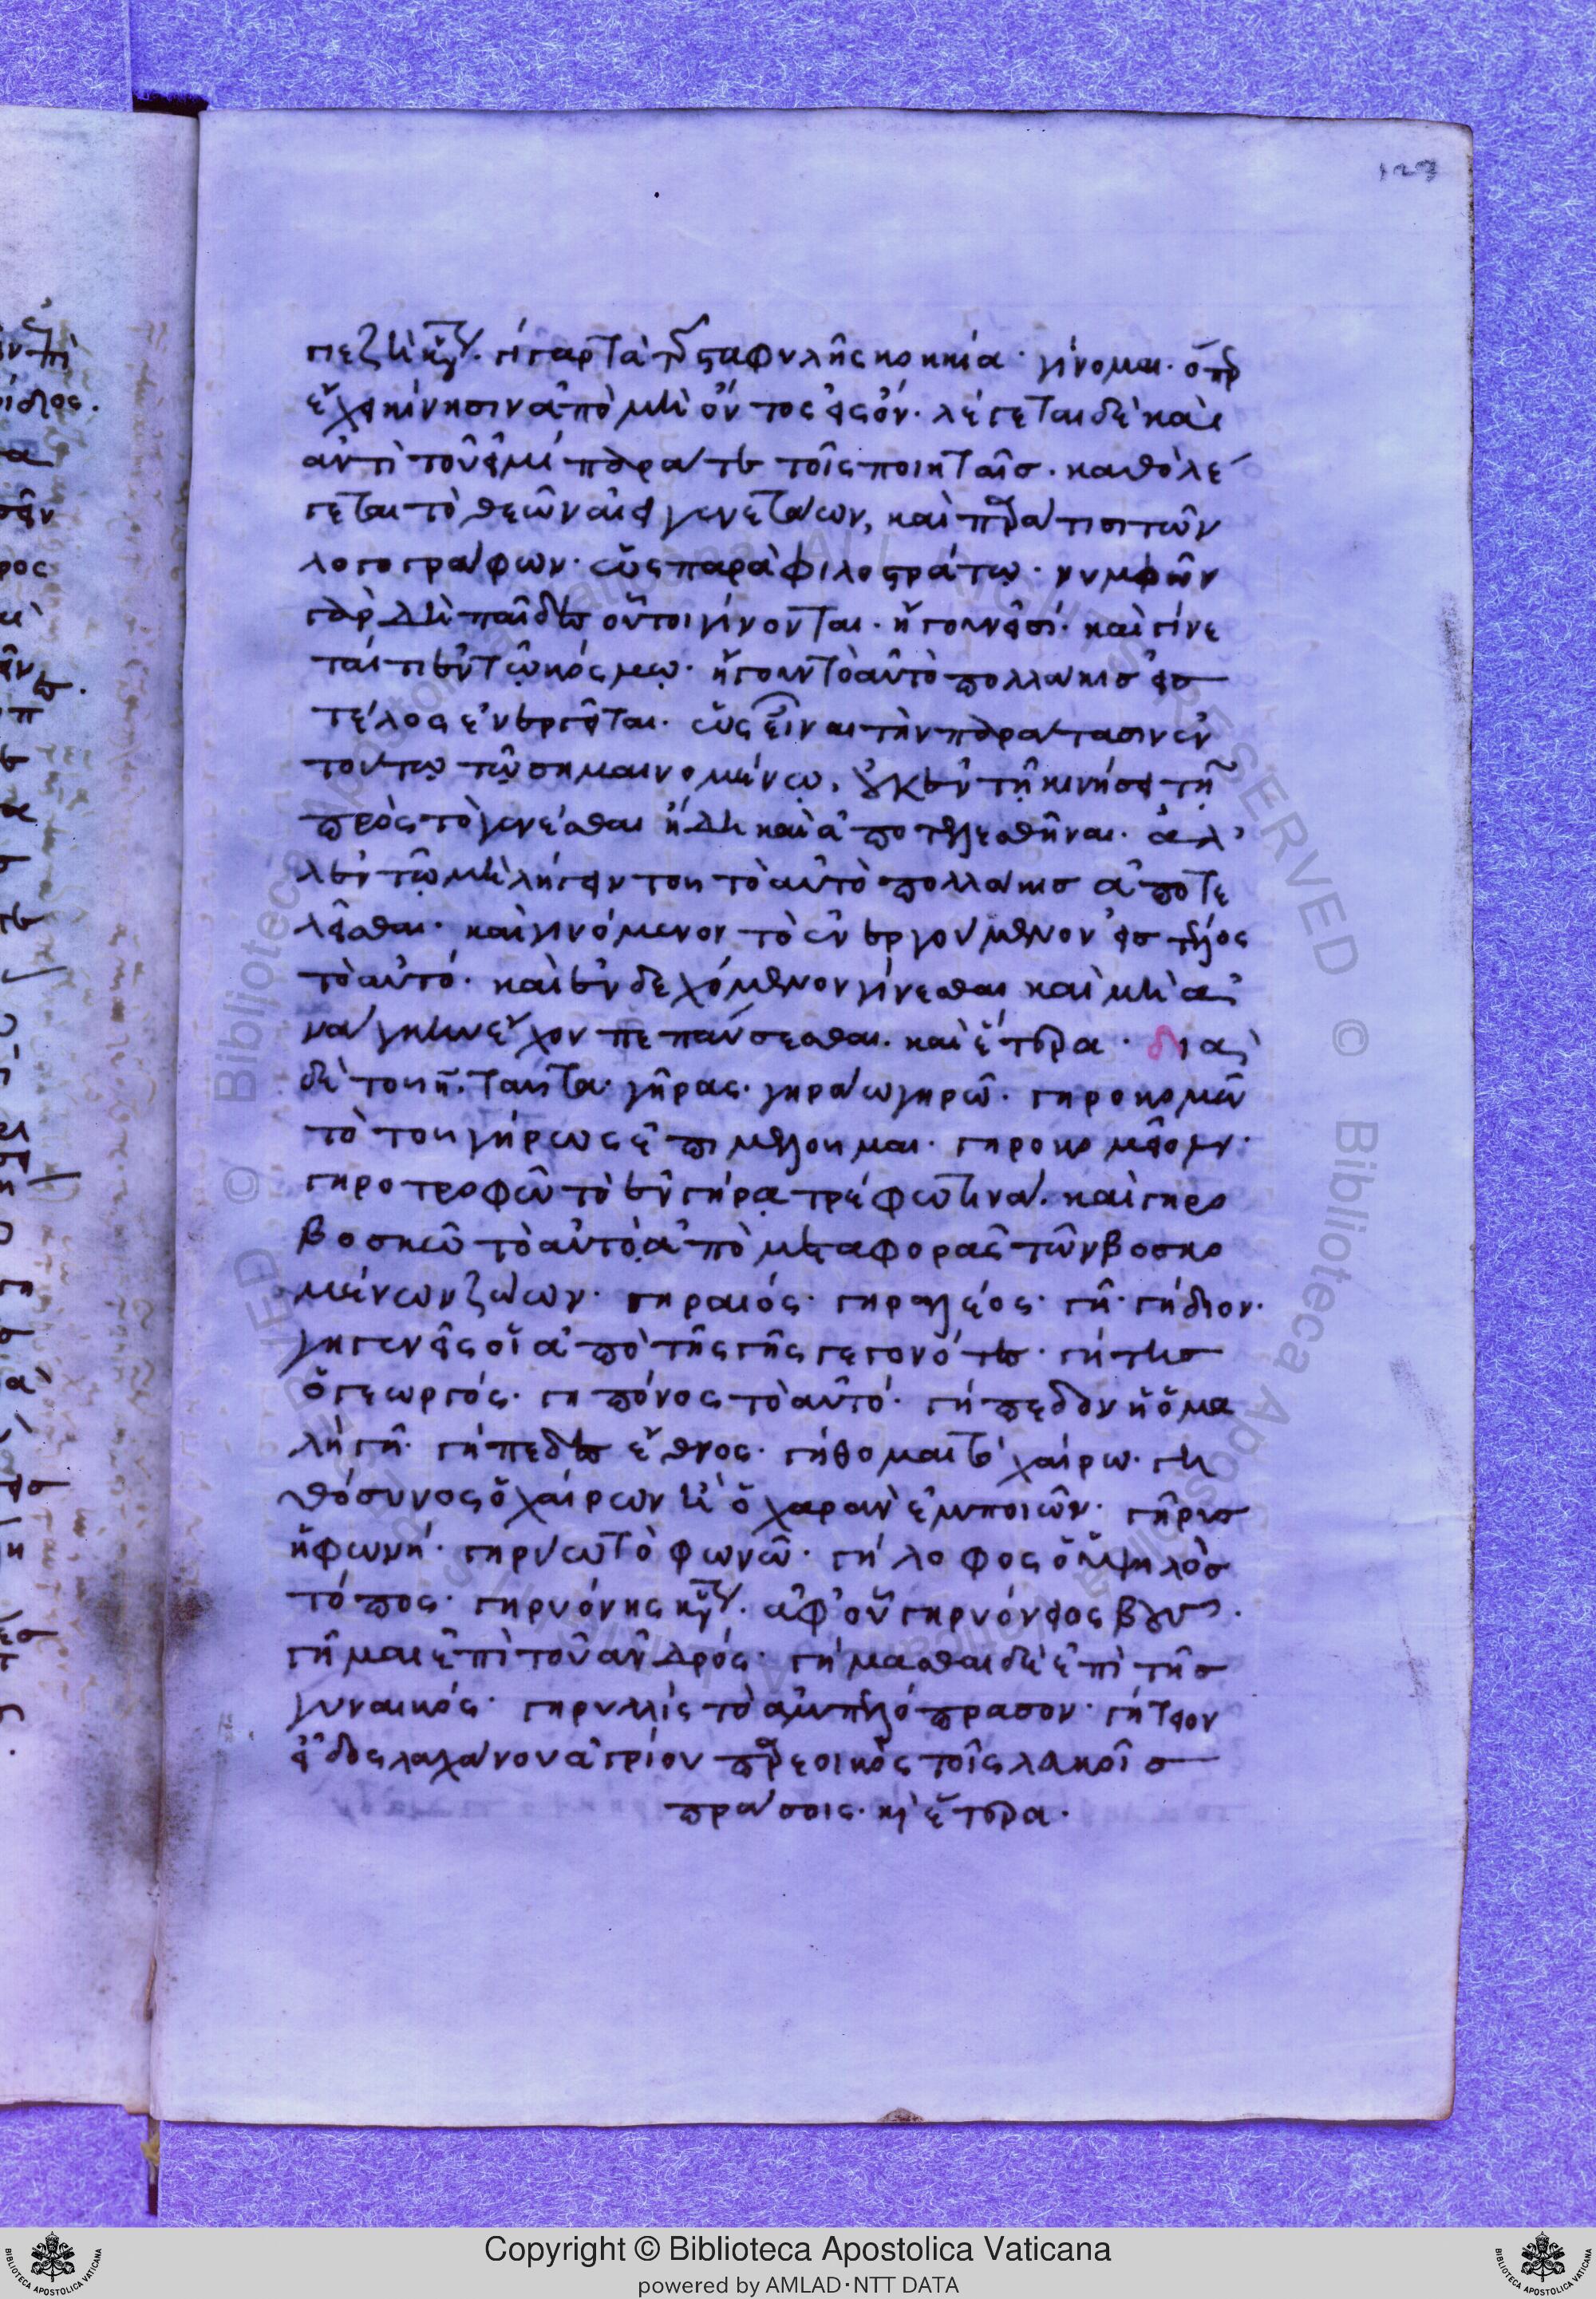 127
γίγαρτα τῆς σταφυλῆς κοκκία. γίνομαι. ὅπερ
ἔχει κίνησιν ἀπὸ μὴ ὄντος εἰς ὄν. λέγεται δὲ καὶ
ἀντὶ τοῦ εἰμί παρά τε τοῖς ποιηταῖς. καθὸ λέ
γεται τὸ θεῶν αἰειγενετάων, καὶ παρά τισι τῶν
λογογράφων. ὡς παρὰ φιλοστράτῳ. νυμφῶν
γὰρ δὴ παῖδες οὗτοι γίνονται. ἤγουν εἰσί. καὶ γίνε
ταί τι ἐν τῷ κόσμῳ. ἤγουν τὸ αὐτὸ πολλάκις εἰς
τέλος ἐνεργεῖται. ὡς εἶναι τὴν παράτασιν ἐν
τούτῳ τῷ σημαινομένῳ, οὐκ ἐν τῇ κινήσει τῇ
πρὸς τὸ γενέσθαι ἤδη καὶ ἀποτελεσθῆναι. ἀλ
λ' ἐν τῷ μὴ λήγειν του τὸ αὐτὸ πολλάκις ἀποτε
λεῖσθαι. καὶ γινόμενον τὸ ἐνεργούμενον εἰς τέλος
τὸ αὐτό. καὶ ἐνδεχόμενον γίνεσθαι καὶ μὴ ἀ
νάγκην ἔχον πεπαύσεσθαι. καὶ ἕτερα. διὰ
δὲ τοῦ η. ταῦτα. γῆρας. γηράω γηρῶ. γηροκομῶ
τὸ τοῦ γήρως ἐπιμελοῦμαι. γηροκομεῖον.
γηροτροφῶ τὸ ἐν γήρᾳ τρέφω τινά. καὶ γηρο
βοσκῶ τὸ αὐτὸ, ἀπὸ μεταφορᾶς τῶν βοσκο
μένων ζώων. γηραιός. γηραλέος. γῆ. γήδιον.
γηγενεῖς οἱ ἀπὸ τῆς γῆς γεγονότες. γήτης
ὁ γεωργός. γηπόνος τὸ αὐτό. γήπεδον ἡ ὁμα
λή γῆ. γήπεδες ἔθνος. γήθομαι τὸ χαίρω. γη
θόσυνος ὁ χαίρων καὶ ὁ χαρὰν ἐμποιῶν. γῆρις
ἡ φωνή. γηρύω τὸ φωνῶ. γήλοφος ὁ ὑψηλὸς
τόπος. γηρυόνης κύριον. ἀφ' οὗ γηρυόνειος
γῆμαι ἐπὶ τοῦ ἀνδρός. γήμασθαι δὲ ἐπὶ τῆς
γυναικός. γηρυλλίς τὸ ἀμπελόπρασον. γήτειον
εἶδος λαχάνου ἀγρίου προσεοικὸς τοῖς λακοῖς
πράσοις. καὶ ἕτερα.
Copyright © Biblioteca Apostolica Vaticana
powered by AMLAD·NTT DATA